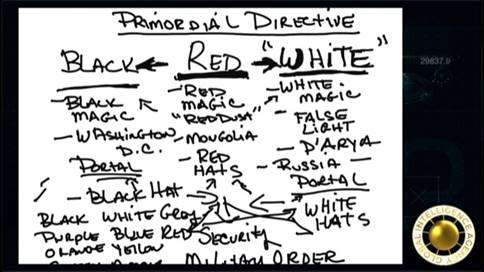 PRIMORDIAL DIRECTIVE
BLACK ← RED → "WHITE"
- BLACK MAGIC
- WASHINGTON D.C.
PORTAL
- BLACK HAT
BLACK WHITE GRAY
PURPLE BLUE RED
ORANGE YELLOW
- RED MAGIC
"RED DUST"
- MONGOLIA
- RED HATS
SECURITY
MILITARY ORDER
- WHITE MAGIC
- FALSE LIGHT
- D'ARYA
- RUSSIA -
PORTAL
WHITE HATS
29837.9
GLOBAL INTELLIGENCE AGENCY